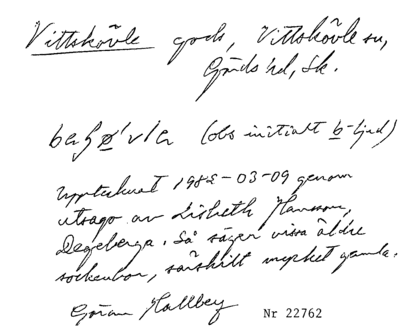 Vittskövle gods, Vittskövle sn,
Gärds hd, Sk.
(obs initialt b-ljud)
Upptecknat 1982-03-09 genom
utsago av Lisbeth Hansson,
Degeberga. Så säger vissa äldre
sockenbor, särskilt mycket gamla.
Göran Hallberg
Nr 22762